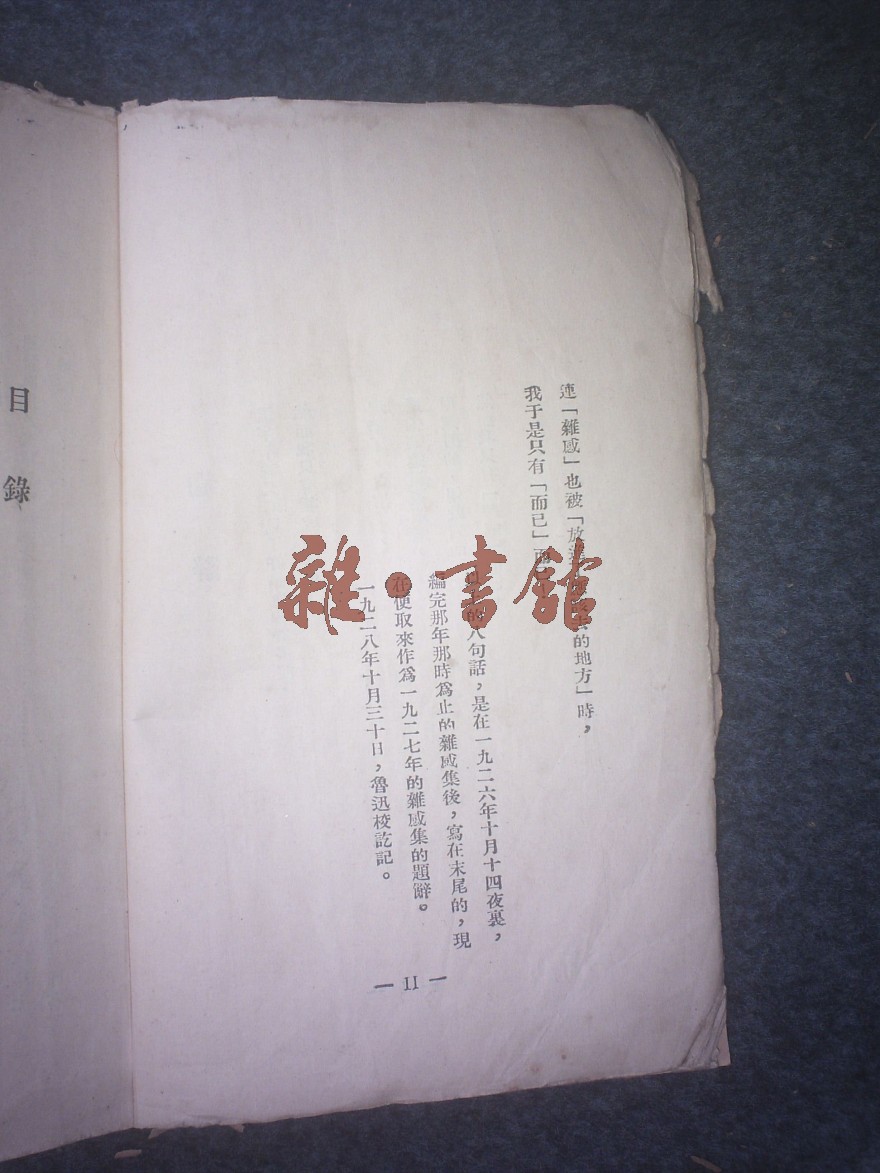 連「雜感」也被「放的地方」時，
我于是只有「而已」而
的八句話，是在一九二六年十月十四夜裏，
編完那年那時為止的雜感集後，寫在末尾的，現
在便取來作為一九二七年的雜感集的題辭。
一九二八年十月三十日，魯迅校訖記。
— II —
目錄
雜·書館